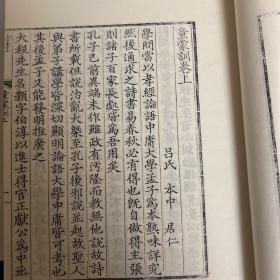 童蒙訓卷上
呂氏 本中 居仁
學問當以孝經論語中庸大學孟子為本熟味詳究
然後通求之詩書易春秋必有得也既自做得主張
則諸子百家長處皆為吾用矣
孔子已前異端未作雖政有汙隆而教無他說故詩
書所載但說治亂大槩至孔子後邪說並起故聖人
與弟子講學皆深切顯明論語大學中庸皆可考也
其後孟子又能發明推廣之
大程先生名顥字伯淳以進士得官正獻公為中丞
童蒙訓上
一